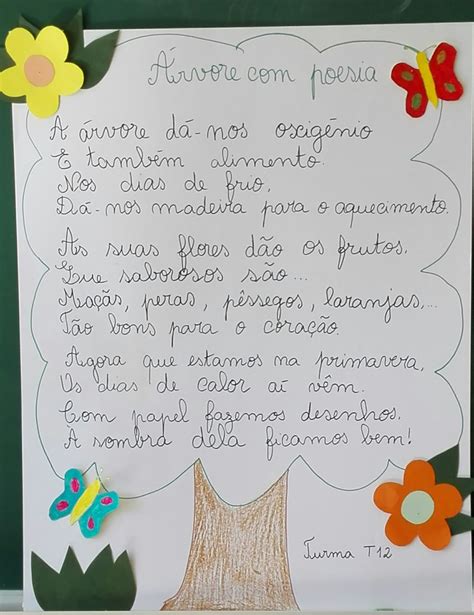 Árvore com poesia
A árvore dá-nos oxigénio
E também alimento.
Nos dias de frio,
Dá-nos madeira para o aquecimento.
As suas flores dão os frutos,
Que saborosos são...
Maçãs, peras, pêssegos, laranjas,...
Tão bons para o coração.
Agora que estamos na primavera,
Os dias de calor aí vêm.
Com papel fazemos desenhos.
À sombra dela ficamos bem!
Turma T12